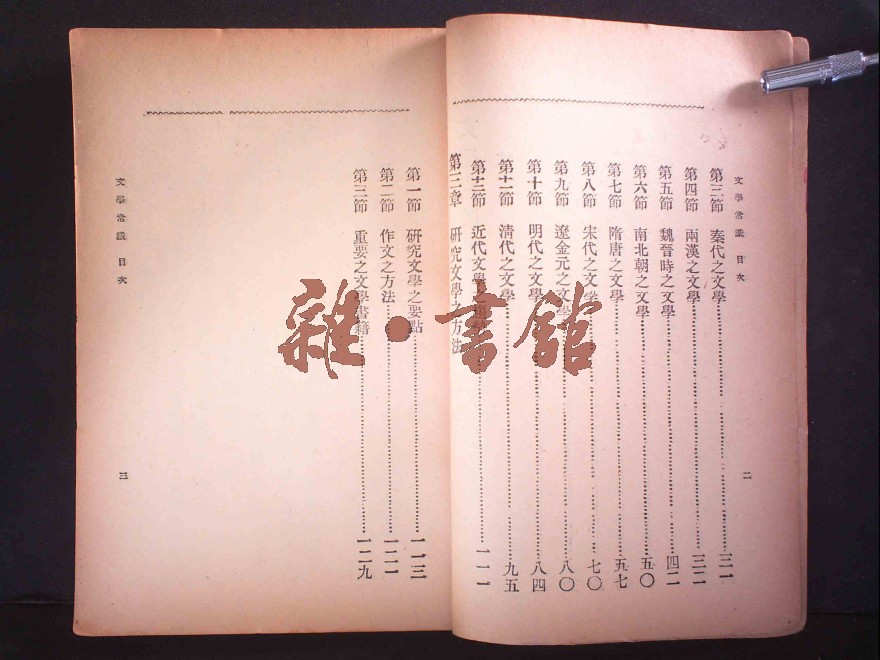 文學常識 目次
第三節 秦代之文學……三一
第四節 兩漢之文學……三二
第五節 魏晉時之文學……四二
第六節 南北朝之文學……五〇
第七節 隋唐之文學……五七
第八節 宋代之文學……七〇
第九節 遼金元之文學……八〇
第十節 明代之文學……八四
第十一節 清代之文學……九五
第十二節 近代文學之……一一一
第三章 研究文學之方法
二
第一節 研究文學之要點……一一三
第二節 作文之方法……一二一
第三節 重要之文學書籍……一二九
文學常識 目次
三
雜·書館